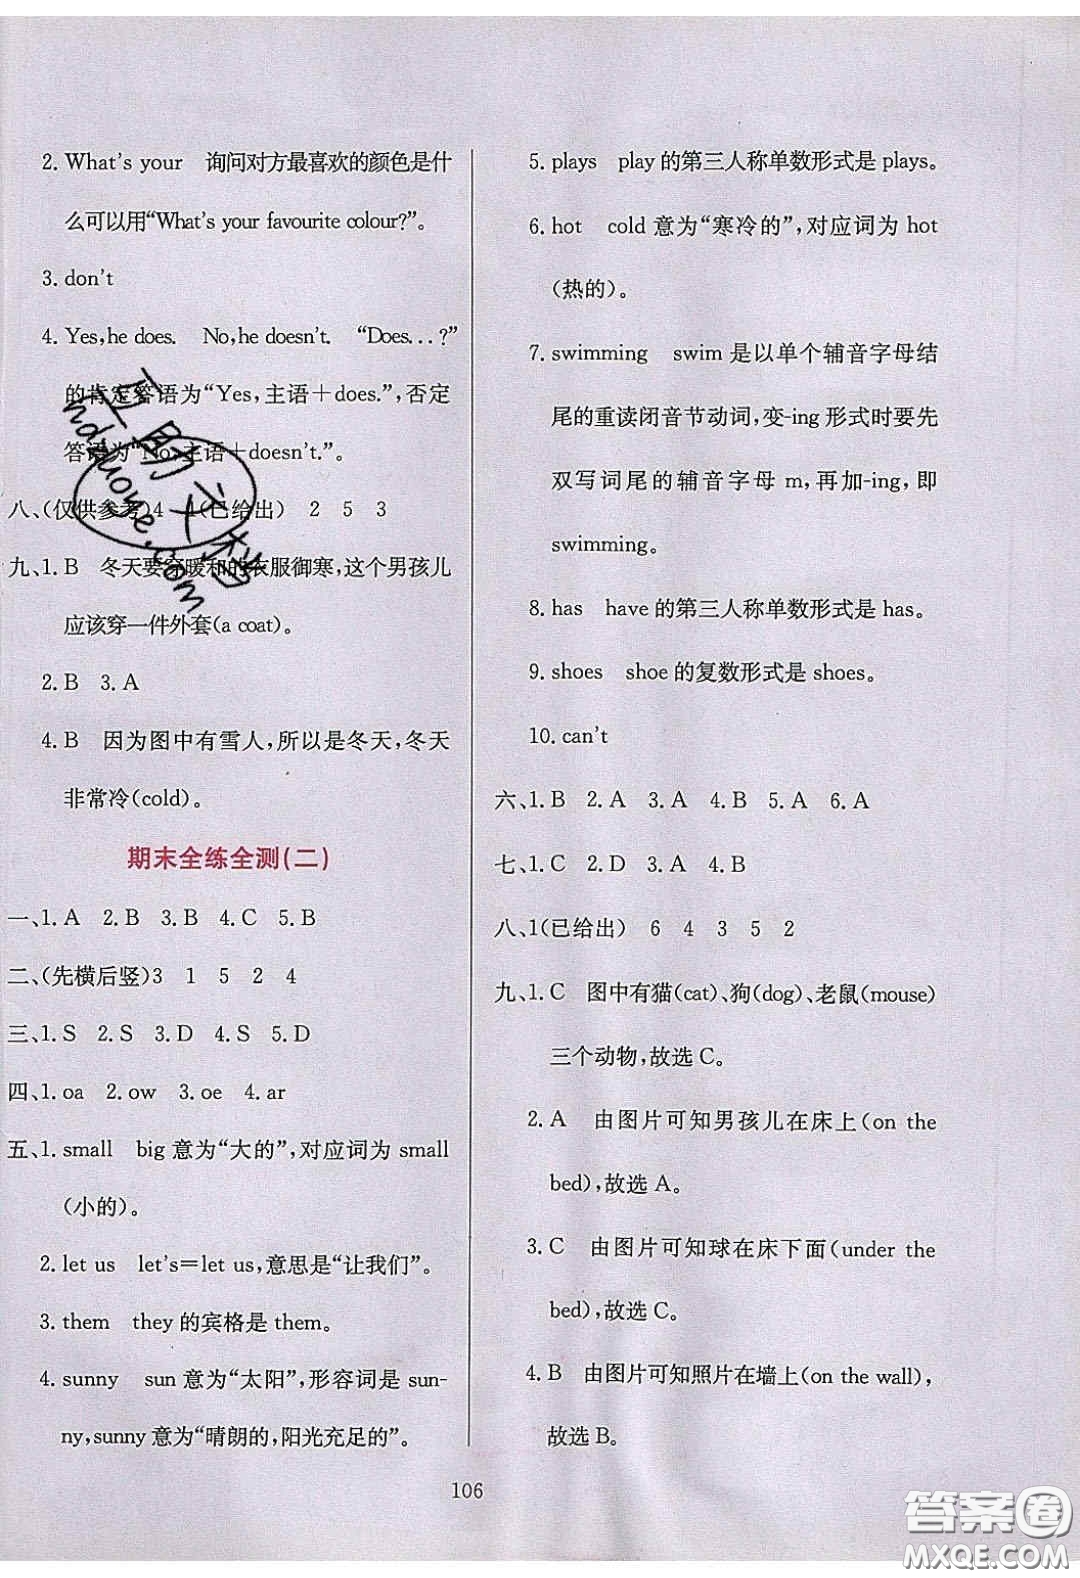 2. What's your　询问对方最喜欢的颜色是什
么可以用“What's your favourite colour?”。
3. don't
4. Yes,he does.　No,he doesn't.　“Does...?”
的肯定答语为“Yes,主语+does.”,否定
答语为“No,主语+doesn't.”。
八、(仅供参考)4　1(已给出)　2　5　3
九、1. B　冬天要穿暖和的衣服御寒,这个男孩儿
应该穿一件外套(a coat)。
2. B　3. A
4. B　因为图中有雪人,所以是冬天,冬天
非常冷(cold)。
期末全练全测(二)
一、1. A　2. B　3. B　4. C　5. B
二、(先横后竖)3　1　5　2　4
三、1. S　2. S　3. D　4. S　5. D
四、1. oa　2. ow　3. oe　4. ar
五、1. small　big 意为“大的”,对应词为 small
(小的)。
2. let us　let's=let us,意思是“让我们”。
3. them　they的宾格是 them。
4. sunny　sun 意为“太阳”,形容词是 sun-
ny,sunny 意为“晴朗的,阳光充足的”。
5. plays　play 的第三人称单数形式是 plays。
6. hot　cold 意为“寒冷的”,对应词为 hot
(热的)。
7. swimming　swim 是以单个辅音字母结
尾的重读闭音节动词,变-ing 形式时要先
双写词尾的辅音字母 m,再加-ing,即
swimming。
8. has　have 的第三人称单数形式是 has。
9. shoes　shoe 的复数形式是 shoes。
10. can't
六、1. B　2. A　3. A　4. B　5. A　6. A
七、1. C　2. D　3. A　4. B
八、1(已给出)　6　4　3　5　2
九、1. C　图中有猫(cat)、狗(dog)、老鼠(mouse)
三个动物,故选 C。
2. A　由图片可知男孩儿在床上(on the
bed),故选 A。
3. C　由图片可知球在床下面(under the
bed),故选 C。
4. B　由图片可知照片在墙上(on the wall),
故选 B。
106
答案圈
MXQE.COM